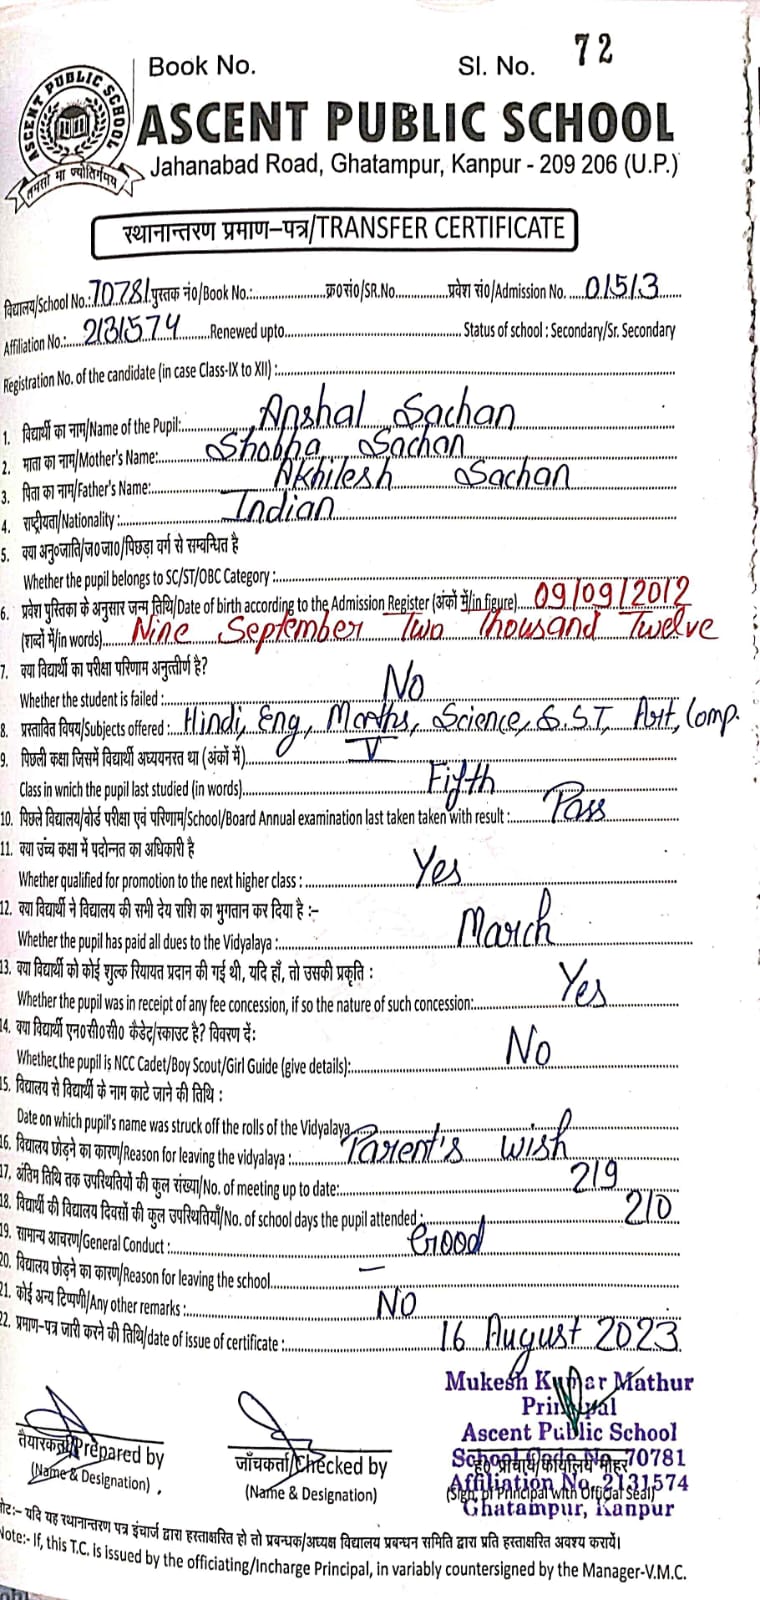 Book No. Sl. No. 72
ASCENT PUBLIC SCHOOL
तमसो मा ज्योतिर्गमय
ASCENT PUBLIC SCHOOL
Jahanabad Road, Ghatampur, Kanpur - 209 206 (U.P.)
स्थानान्तरण प्रमाण-पत्र/TRANSFER CERTIFICATE
विद्यालय/School No.: 70781 पुस्तक नं०/Book No.:.......... क्र०सं०/SR.No.......... प्रवेश सं०/Admission No. ..... 01513
Affiliation No.:..... 2131574 ..... Renewed upto.......... Status of school : Secondary/Sr. Secondary
Registration No. of the candidate (in case Class-IX to XII) :..........
1. विद्यार्थी का नाम/Name of the Pupil:..... Anshal Sachan
2. माता का नाम/Mother's Name:..... Shobha Sachan
3. पिता का नाम/Father's Name:..... Akhilesh Sachan
4. राष्ट्रीयता/Nationality :..... Indian
5. क्या अनु०जाति/ज०जा०/पिछड़ा वर्ग से सम्बन्धित है
Whether the pupil belongs to SC/ST/OBC Category :..........
6. प्रवेश पुस्तिका के अनुसार जन्म तिथि/Date of birth according to the Admission Register (अंकों में/in figure) ..... 09/09/2012
(शब्दों में/in words)..... Nine September Two Thousand Twelve
7. क्या विद्यार्थी का परीक्षा परिणाम अनुत्तीर्ण है?
Whether the student is failed :..... No
8. प्रस्तावित विषय/Subjects offered : Hindi, Eng, Maths, Science, S.ST, Art, Comp.
9. पिछली कक्षा जिसमें विद्यार्थी अध्ययनरत था (अंकों में)..... V
Class in wnich the pupil last studied (in words)..... Fifth
10. पिछले विद्यालय/बोर्ड परीक्षा एवं परिणाम/School/Board Annual examination last taken taken with result :..... Pass
11. क्या उच्च कक्षा में पदोन्नत का अधिकारी है
Whether qualified for promotion to the next higher class :..... Yes
12. क्या विद्यार्थी ने विद्यालय की सभी देय राशि का भुगतान कर दिया है :-
Whether the pupil has paid all dues to the Vidyalaya :..... March
13. क्या विद्यार्थी को कोई शुल्क रियायत प्रदान की गई थी, यदि हाँ, तो उसकी प्रकृति :
Whether the pupil was in receipt of any fee concession, if so the nature of such concession:..... Yes
14. क्या विद्यार्थी एन०सी०सी० कैडेट/स्काउट है? विवरण दें:
Whether, the pupil is NCC Cadet/Boy Scout/Girl Guide (give details):..... No
15. विद्यालय से विद्यार्थी के नाम काटे जाने की तिथि :
Date on which pupil's name was struck off the rolls of the Vidyalaya..........
16. विद्यालय छोड़ने का कारण/Reason for leaving the vidyalaya :..... Parent's wish
17. अंतिम तिथि तक उपस्थितियों की कुल संख्या/No. of meeting up to date:..... 219
18. विद्यार्थी की विद्यालय दिवसों की कुल उपस्थितियाँ/No. of school days the pupil attended :..... 210
19. सामान्य आचरण/General Conduct :..... Good
20. विद्यालय छोड़ने का कारण/Reason for leaving the school..... –
21. कोई अन्य टिप्पणी/Any other remarks :..... NO
22. प्रमाण-पत्र जारी करने की तिथि/date of issue of certificate :..... 16 August 2023
Mukesh Kumar Mathur
Principal
Ascent Public School
School Code No. 70781
Affiliation No. 2131574
Ghatampur, Kanpur
तैयारकर्ता/Prepared by
(Name & Designation)
जाँचकर्ता/Checked by
(Name & Designation)
ह० प्राचार्य/कार्यालय मोहर
(Sign. of Principal with Official Seal)
नोट:- यदि यह स्थानान्तरण पत्र इंचार्ज द्वारा हस्ताक्षरित हो तो प्रबन्धक/अध्यक्ष विद्यालय प्रबन्धन समिति द्वारा प्रति हस्ताक्षरित अवश्य करायें।
Note:- If, this T.C. is issued by the officiating/Incharge Principal, in variably countersigned by the Manager-V.M.C.